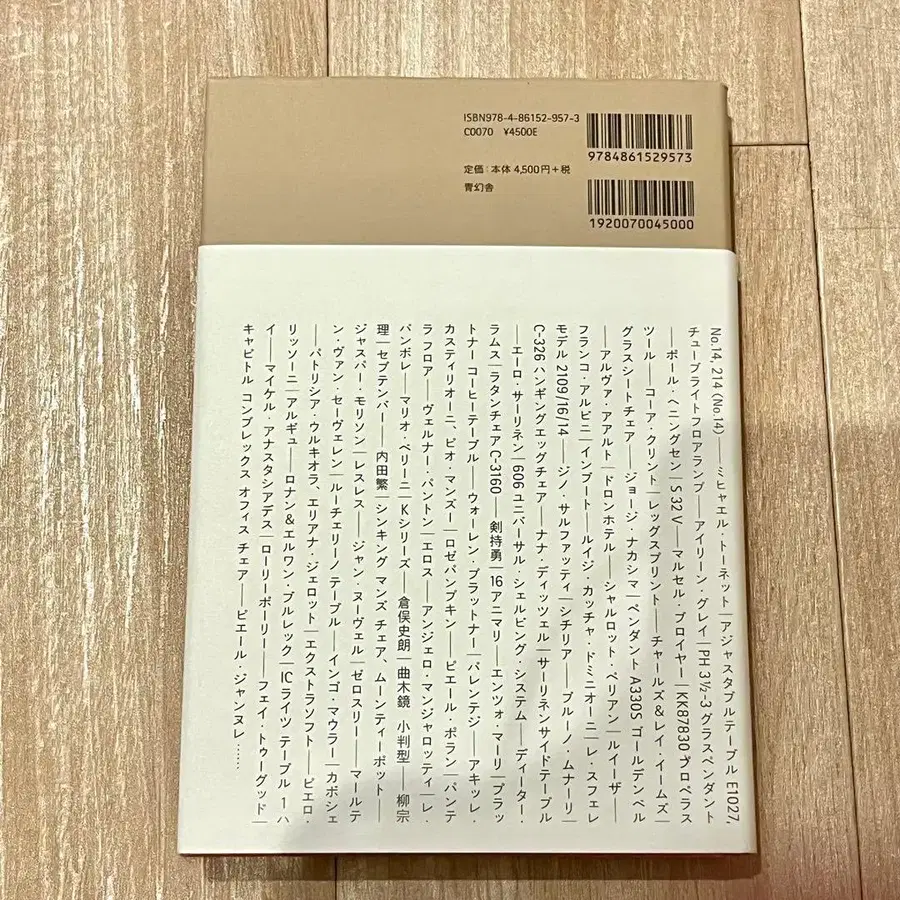 ISBN978-4-86152-957-3
C0070 ¥4500E
定価:本体 4,500円+税
青幻舎
9784861529573
1920070045000
No.14, 214 (No.14)——ミヒャエル・トーネット|アジャスタブルテーブル E1027,
チューブライトフロアランプ——アイリーン・グレイ|PH 3½-3 グラスペンダント
——ポール・ヘニングセン|S 32 V——マルセル・ブロイヤー|KK87830 プロペラス
ツール——コーア・クリント|レッグスプリント——チャールズ&レイ・イームズ|
グラスシートチェア——ジョージ・ナカシマ|ペンダント A330S ゴールデンベル
——アルヴァ・アアルト|ドロンホテル——シャルロット・ペリアン|ルイーザ——
フランコ・アルビニ|インブート——ルイジ・カッチャ・ドミニオーニ|レ・スフェレ
モデル 2109/16/14——ジノ・サルファッティ|シチリア——ブルーノ・ムナーリ|
C-326 ハンギングエッグチェア——ナナ・ディッツェル|サーリネンサイドテーブル
——エーロ・サーリネン|606 ユニバーサル・シェルビング・システム——ディーター・
ラムス|ラタンチェアC-3160——剣持勇|16アニマリ——エンツォ・マーリ|プラッ
トナー コーヒーテーブル——ウォーレン・プラットナー|バレンテジ——アキッレ・
カスティリオーニ、ピオ・マンズー|ロゼパンプキン——ピエール・ポラン|パンテ
ラ フロア——ヴェルナー・パントン|エロス——アンジェロ・マンジャロッティ|レ・
バンボレ——マリオ・ベリーニ|Kシリーズ——倉俣史朗|曲木鏡 小判型——柳宗
理|セプテンバー——内田繁|シンキング マンズ チェア、ムーンティーポット——
ジャスパー・モリソン|レスレス——ジャン・ヌーヴェル|ゼロスリー——マールテ
ン・ヴァン・セーヴェレン|ルーチェリーノ テーブル——インゴ・マウラー|カボシェ
——パトリシア・ウルキオラ、エリアナ・ジェロット|エクストラソフト——ピエロ・
リッソーニ|アルギュ——ロナン&エルワン・ブルレック|ICライツ テーブル 1 ハ
イ——マイケル・アナスタシアデス|ローリーポーリー——フェイ・トゥーグッド|
キャピトル コンプレックス オフィス チェア——ピエール・ジャンヌレ……